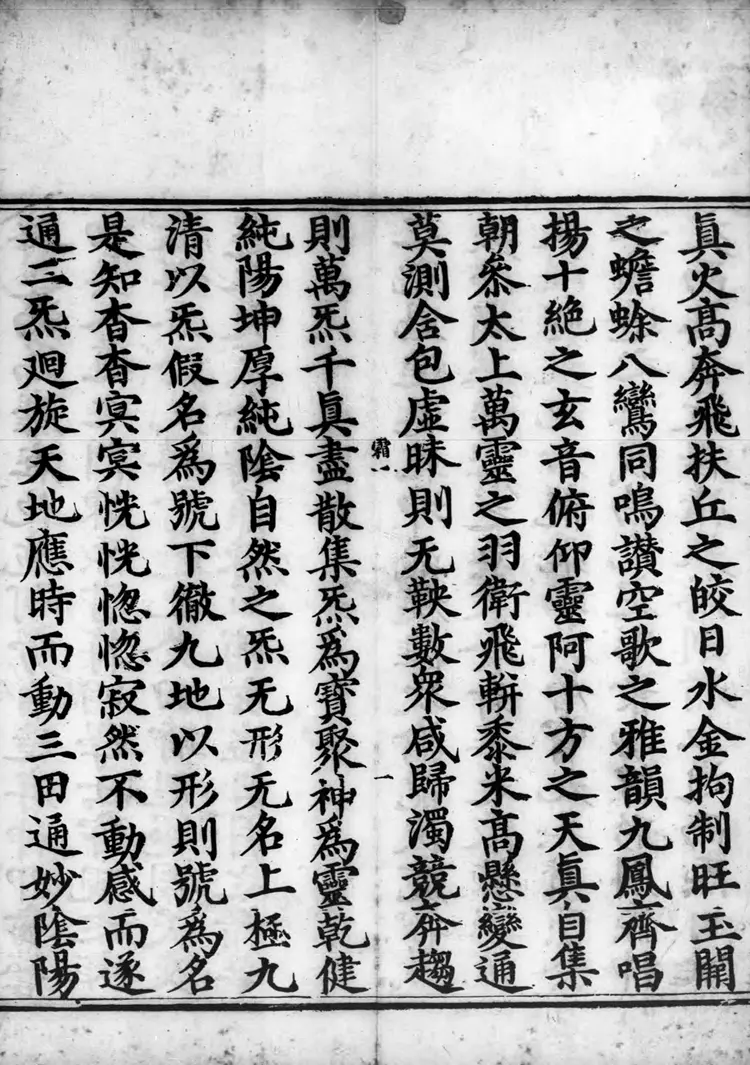 眞火髙奔飛扶丘之皎日水金拘制旺玉開
之蟾蜍八鸞同鳴讃空歌之雅韻九鳳齊唱
揚十絶之玄音俯仰靈阿十方之天眞自集
朝叅太上萬靈之羽衛飛軿黍米髙懸變通
莫測含包虛昧則无鞅數衆咸歸濁競奔趨
霜一
一
則萬炁千眞盡散集炁爲寶聚神爲靈乾健
純陽坤厚純陰自然之炁无形无名上極九
清以炁假名爲號下徹九地以形則號爲名
是知杳杳冥冥恍恍惚惚寂然不動感而遂
通二炁廻旋天地應時而動三田通妙陰陽